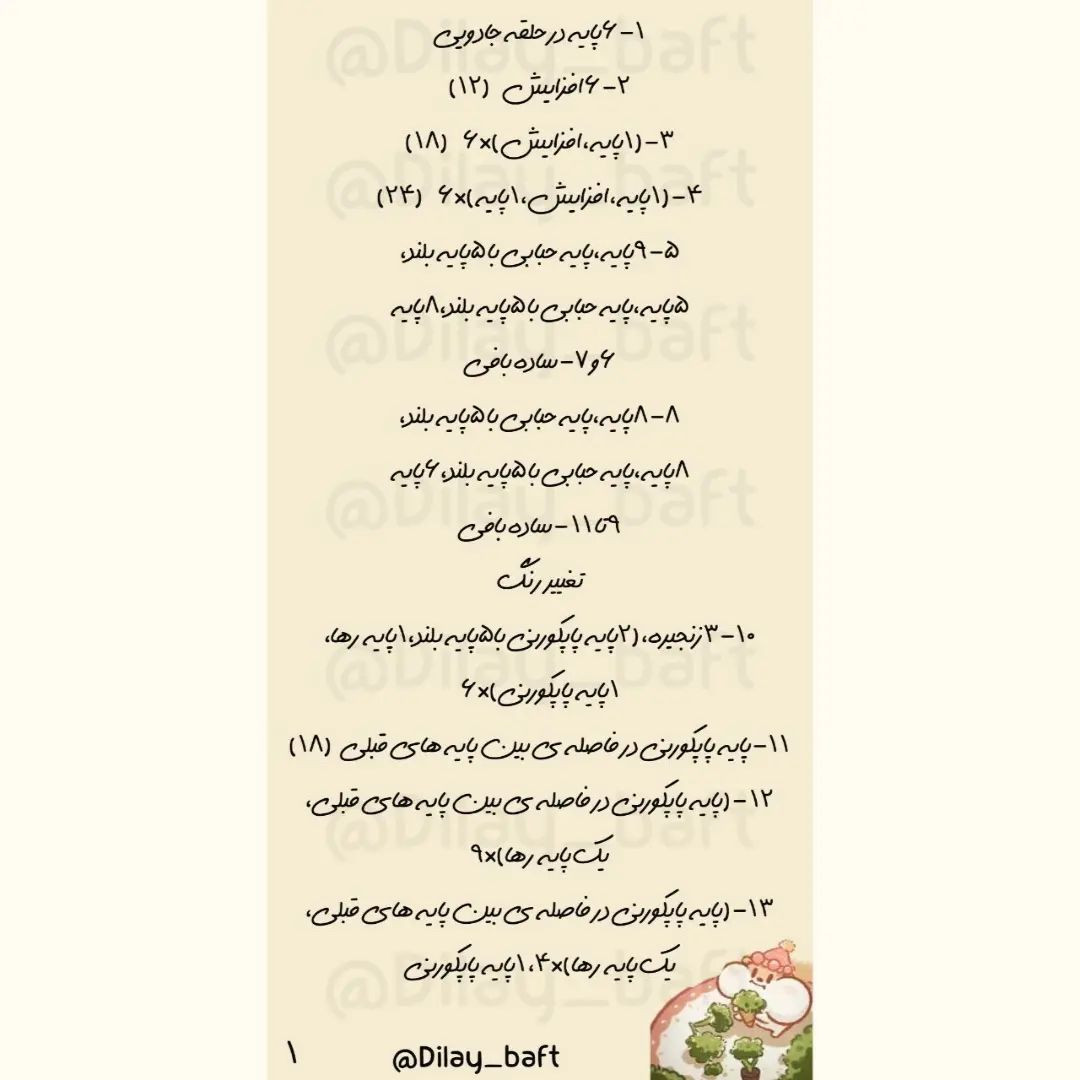 ۱- ۶پایه در حلقه جادویی
۲- ۶افزایش (۱۲)
۳- (۱پایه، افزایش)×۶ (۱۸)
۴- (۱پایه، افزایش، ۱پایه)×۶ (۲۴)
۵- ۹پایه، پایه حبابی با ۵پایه بلند،
۵پایه، پایه حبابی با ۵پایه بلند، ۸پایه
۶و۷- ساده بافی
۸- ۸پایه، پایه حبابی با ۵پایه بلند،
۸پایه، پایه حبابی با ۵پایه بلند، ۶پایه
۹تا۱۱- ساده بافی
تغییر رنگ
۱۰- ۳زنجیره، (۲پایه پاپکورنی با ۵پایه بلند، ۱پایه رها،
۱پایه پاپکورنی)×۶
۱۱- پایه پاپکورنی در فاصله ی بین پایه های قبلی (۱۸)
۱۲- (پایه پاپکورنی در فاصله ی بین پایه های قبلی،
یک پایه رها)×۹
۱۳- (پایه پاپکورنی در فاصله ی بین پایه های قبلی،
یک پایه رها)×۴، ۱پایه پاپکورنی
۱
@Dilay_baft